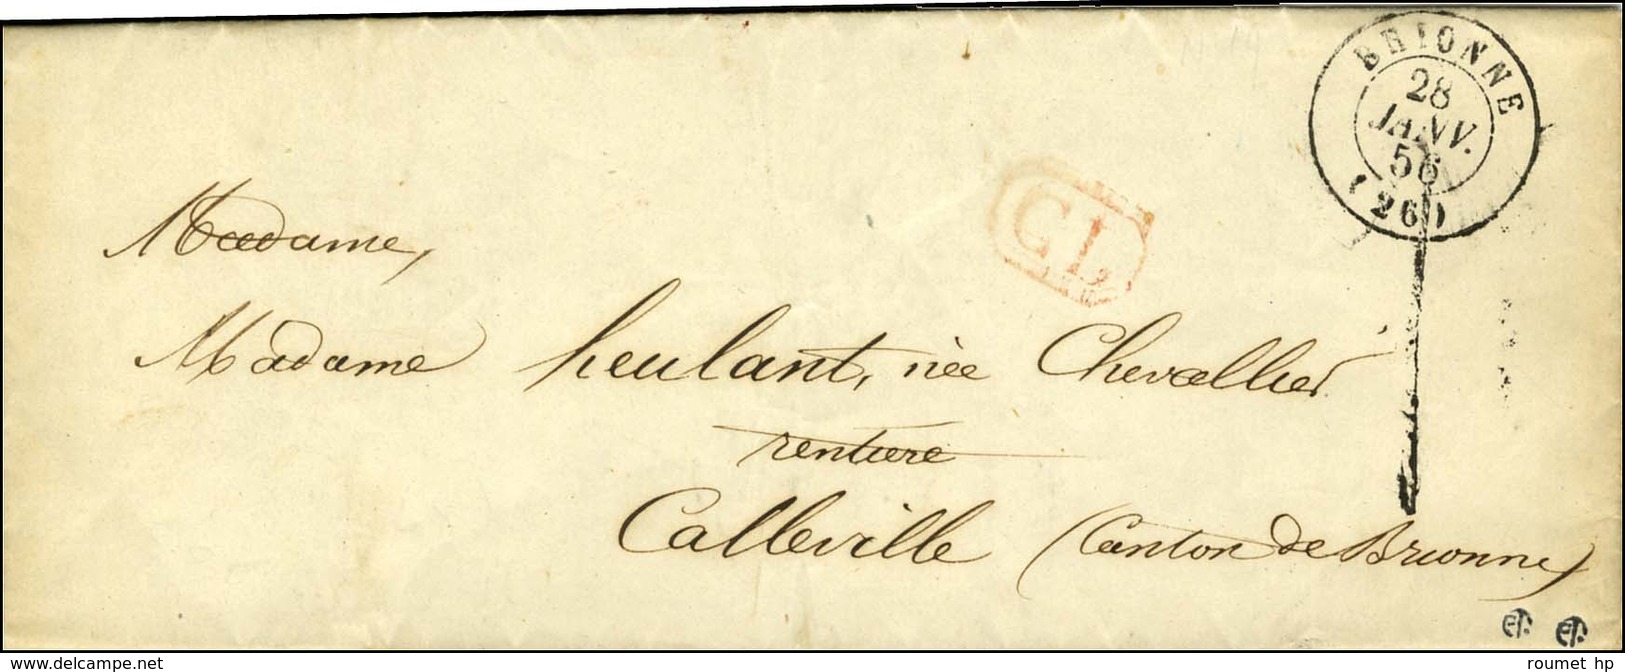 BRIONNE
28
JANV.
56
(26)
CL
Madame,
Madame heulant, née Chevallier
rentière
Calleville (Canton de Brionne)
www.delcampe.net
roumet hp